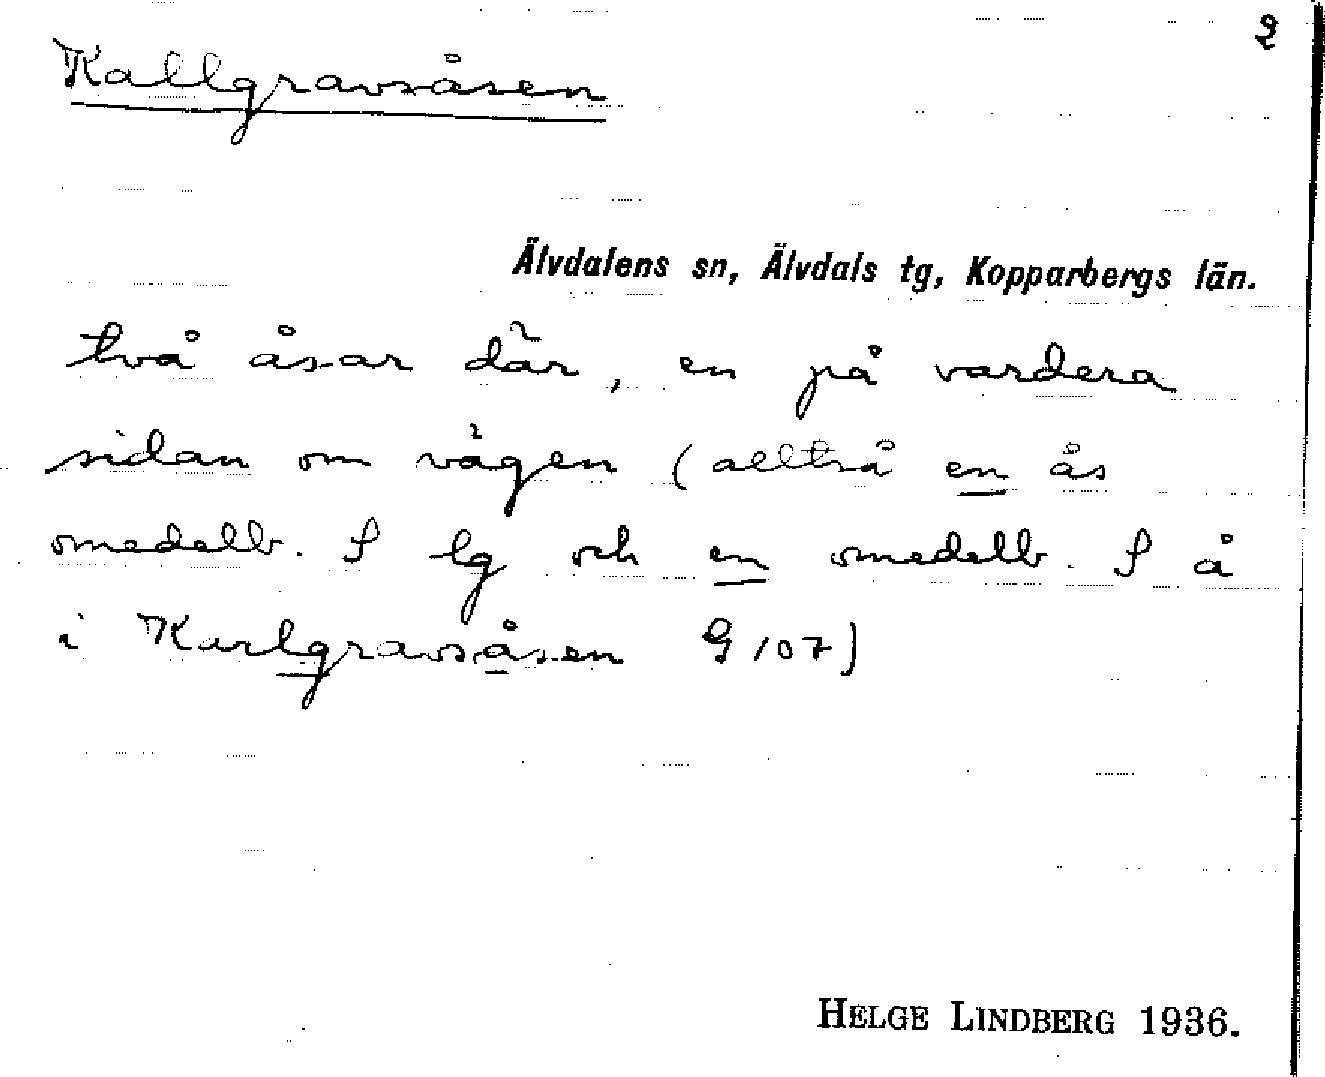 2
Kallgravsåsen
Älvdalens sn, Älvdals tg, Kopparbergs län.
två åsar där, en på vardera
sidan om vägen (alltså en ås
omedelb. S lg och en omedelb. S å
i Karlgravsåsen G 107)
HELGE LINDBERG 1936.